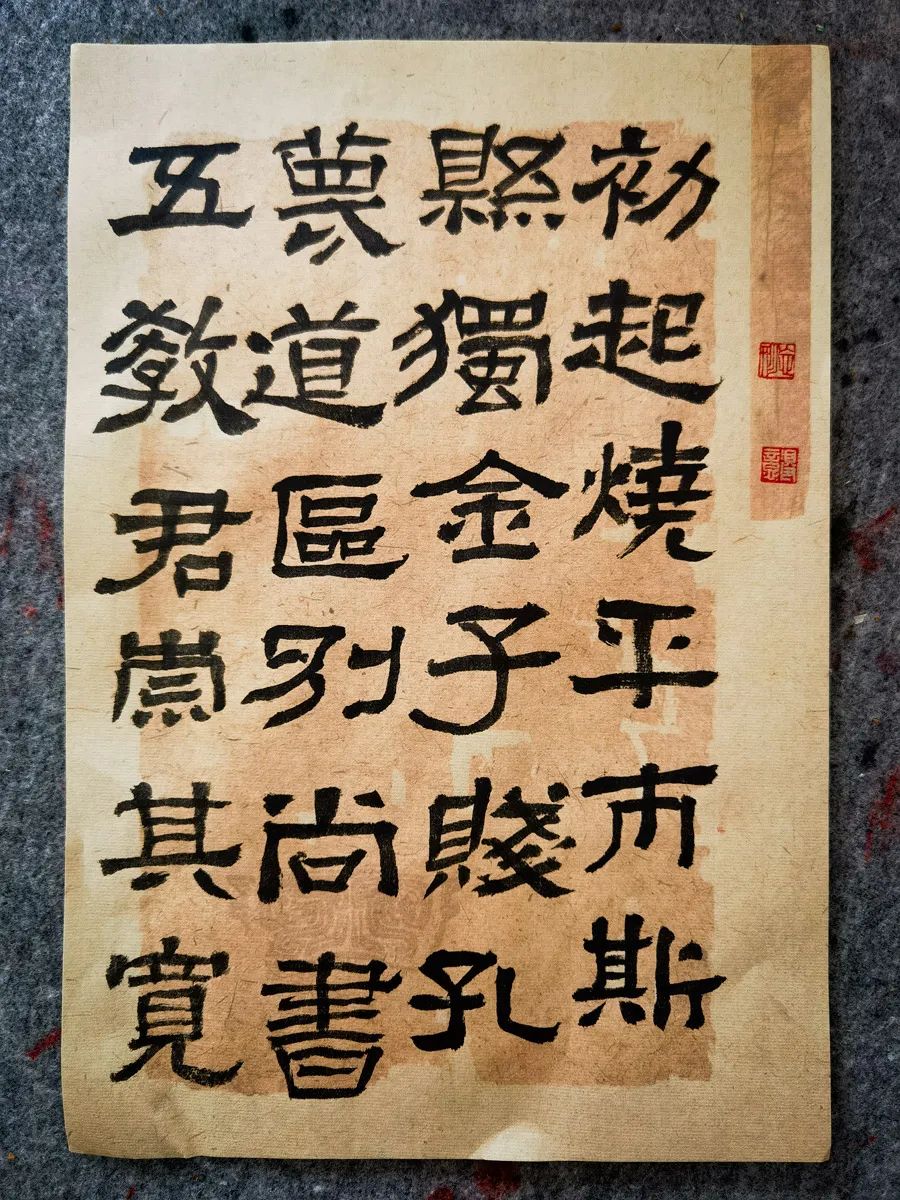 初起燒平市斯
縣獨金子賤孔
蔑道區別尚書
五教君崇其寬